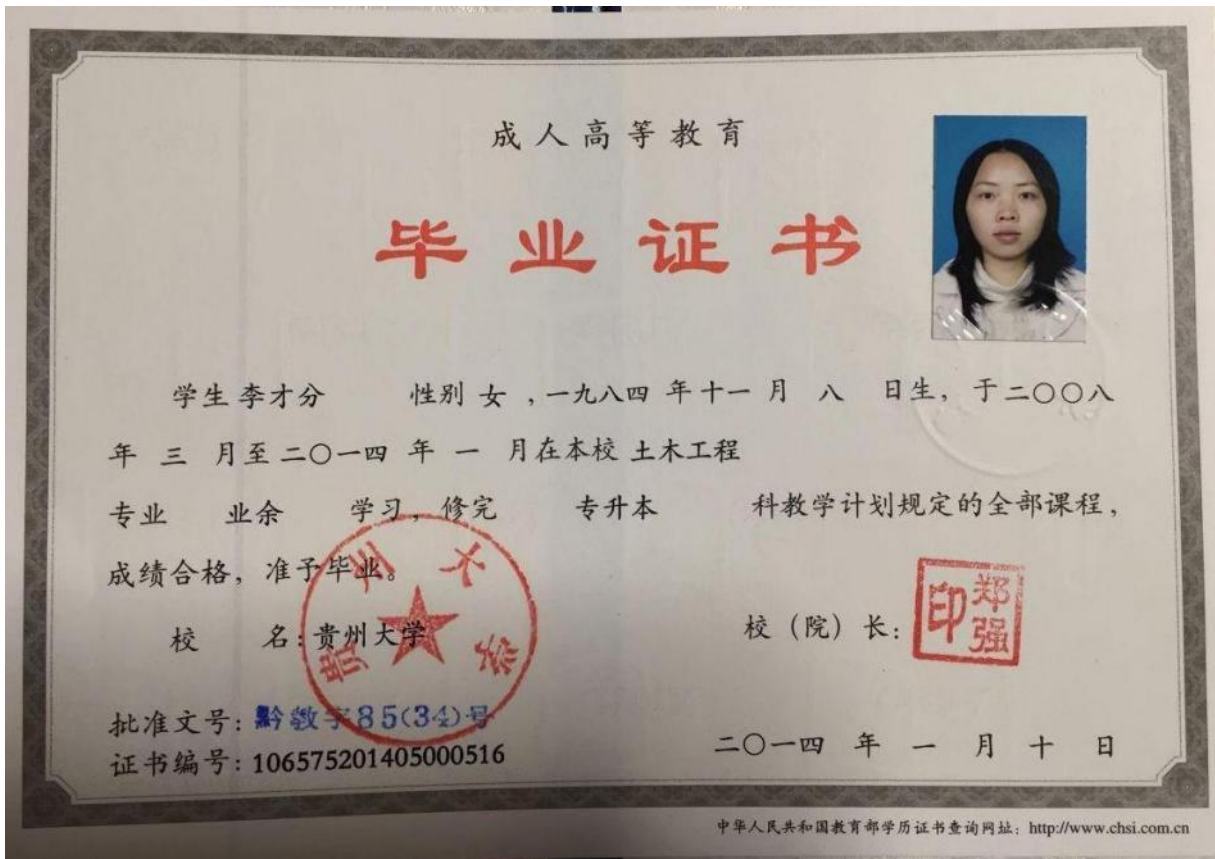 成人高等教育
毕业证书
学生 李才分 性别 女 ,一九八四 年 十一 月 八 日生, 于二〇〇八
年 三 月至二〇一四 年 一 月在本校 土木工程
专业 业余 学习, 修完 专升本 科教学计划规定的全部课程,
成绩合格, 准予毕业。
校 名: 贵州大学
贵州大学
校 (院) 长:
郑强印
批准文号: 黔教字85(34)号
证书编号: 106575201405000516
二〇一四 年 一 月 十 日
中华人民共和国教育部学历证书查询网址: http://www.chsi.com.cn